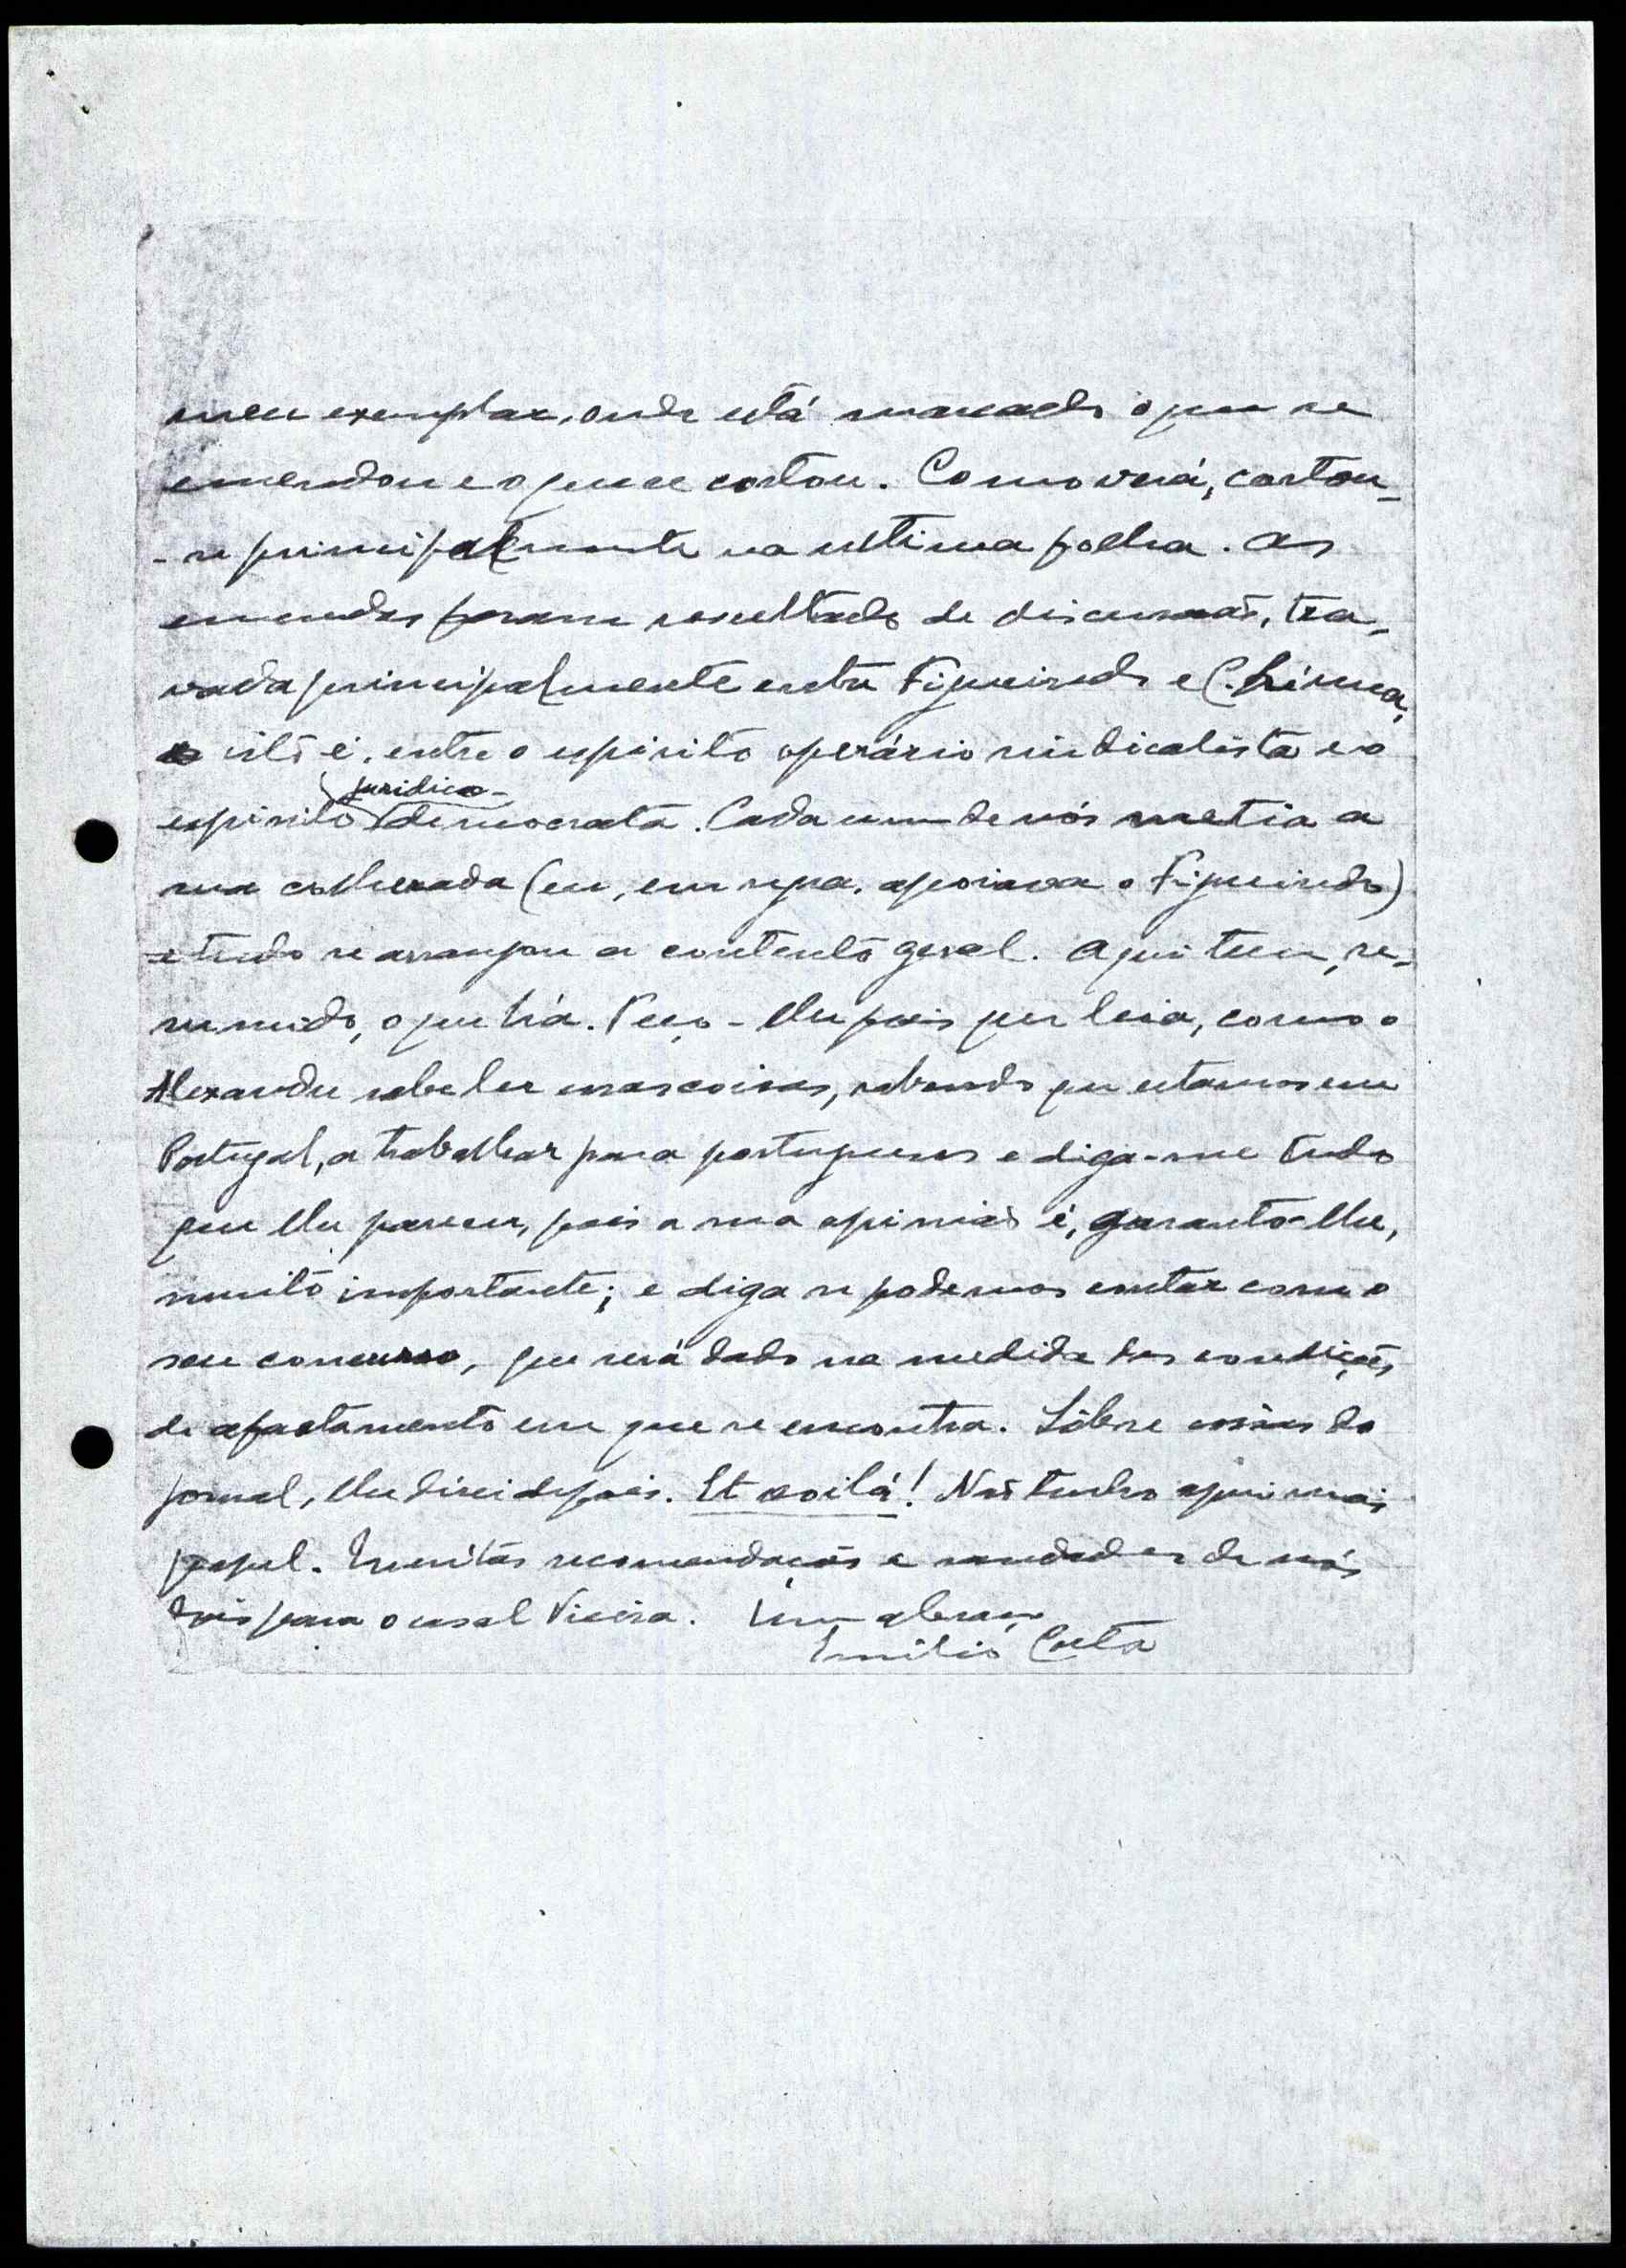 meu exemplar, onde está marcado o que se
emendou e o que se cortou. Como verá, cortou-
-se principalmente na ultima folha. As
emendas foram resultado de discussão, tra-
vada principalmente entre Figueiredo e C. Lima,
isto é, entre o espirito operário sindicalista e o
espirito juridico-
democrata. Cada um de nós metia a
sua colherada (eu, em regra, apoiava o Figueiredo)
e tudo se arranjou a contento geral. Aqui tem, re-
sumido, o que há. Peço-lhe pois que leia, como o
Alexandre sabe ler essas coisas, sabendo que estamos em
Portugal, a trabalhar para portugueses e diga-me tudo
que lhe parecer, pois a sua opinião é, garanto-lhe,
muito importante; e diga se podemos contar com o
seu concurso, que será dado na medida das condições
de afastamento em que se encontra. Sôbre coisas do
jornal, lhe direi depois. Et voilá! Não tenho aqui mais
papel. Muitas recomendações e saudades de nós
dois para o casal Vieira. Um abraço
Emilio Costa